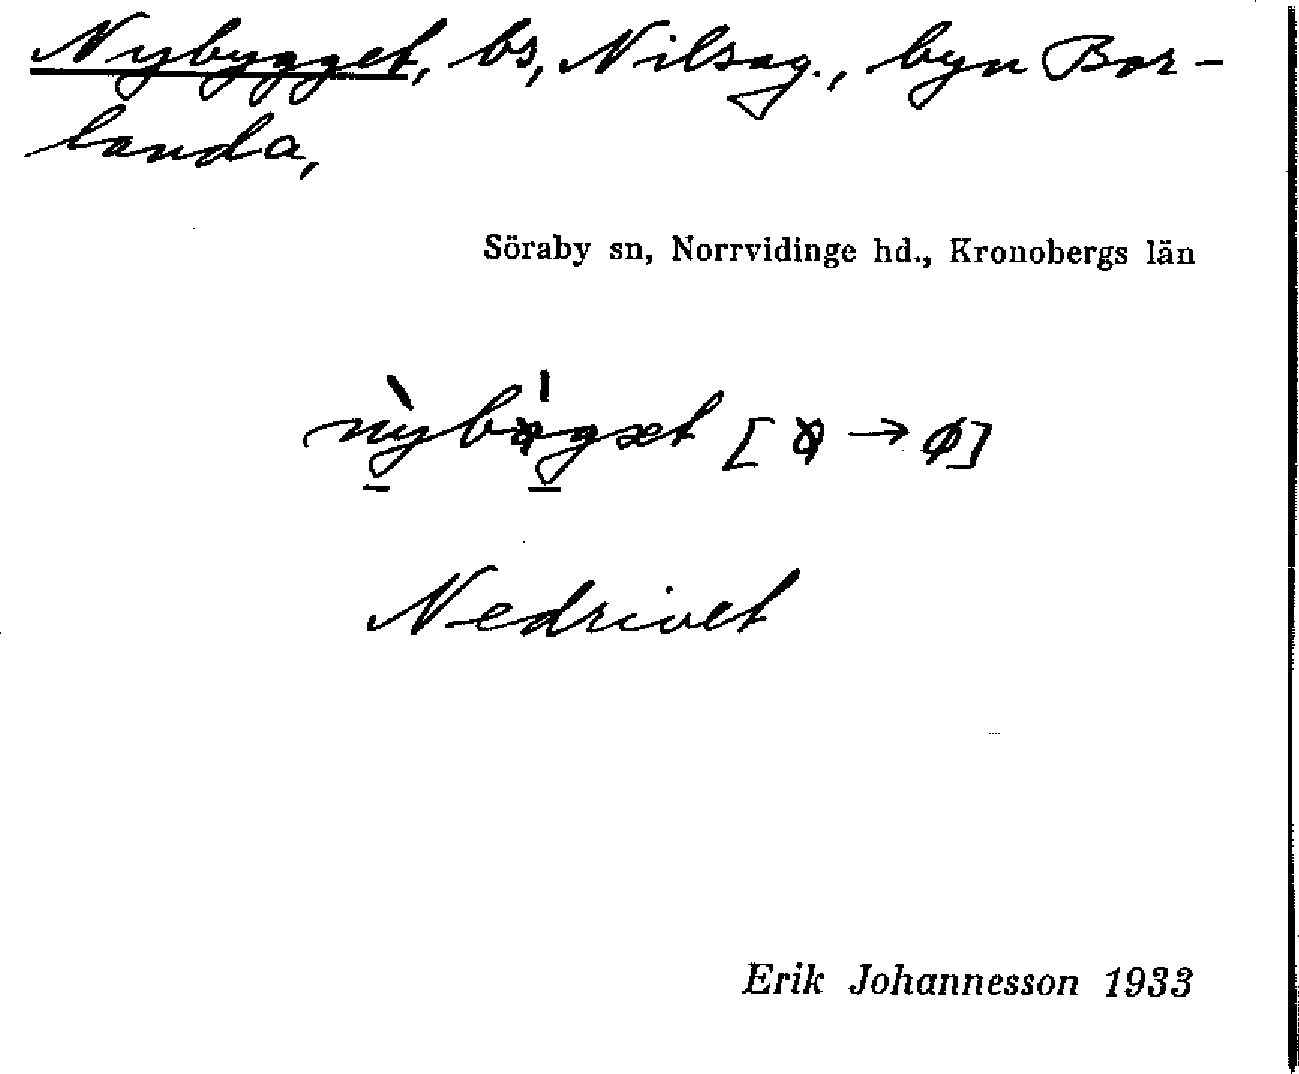 Nybygget, bs, Nilsag., byn Bor-
landa,
Söraby sn, Norrvidinge hd., Kronobergs län
Nedrivet
Erik Johannesson 1933